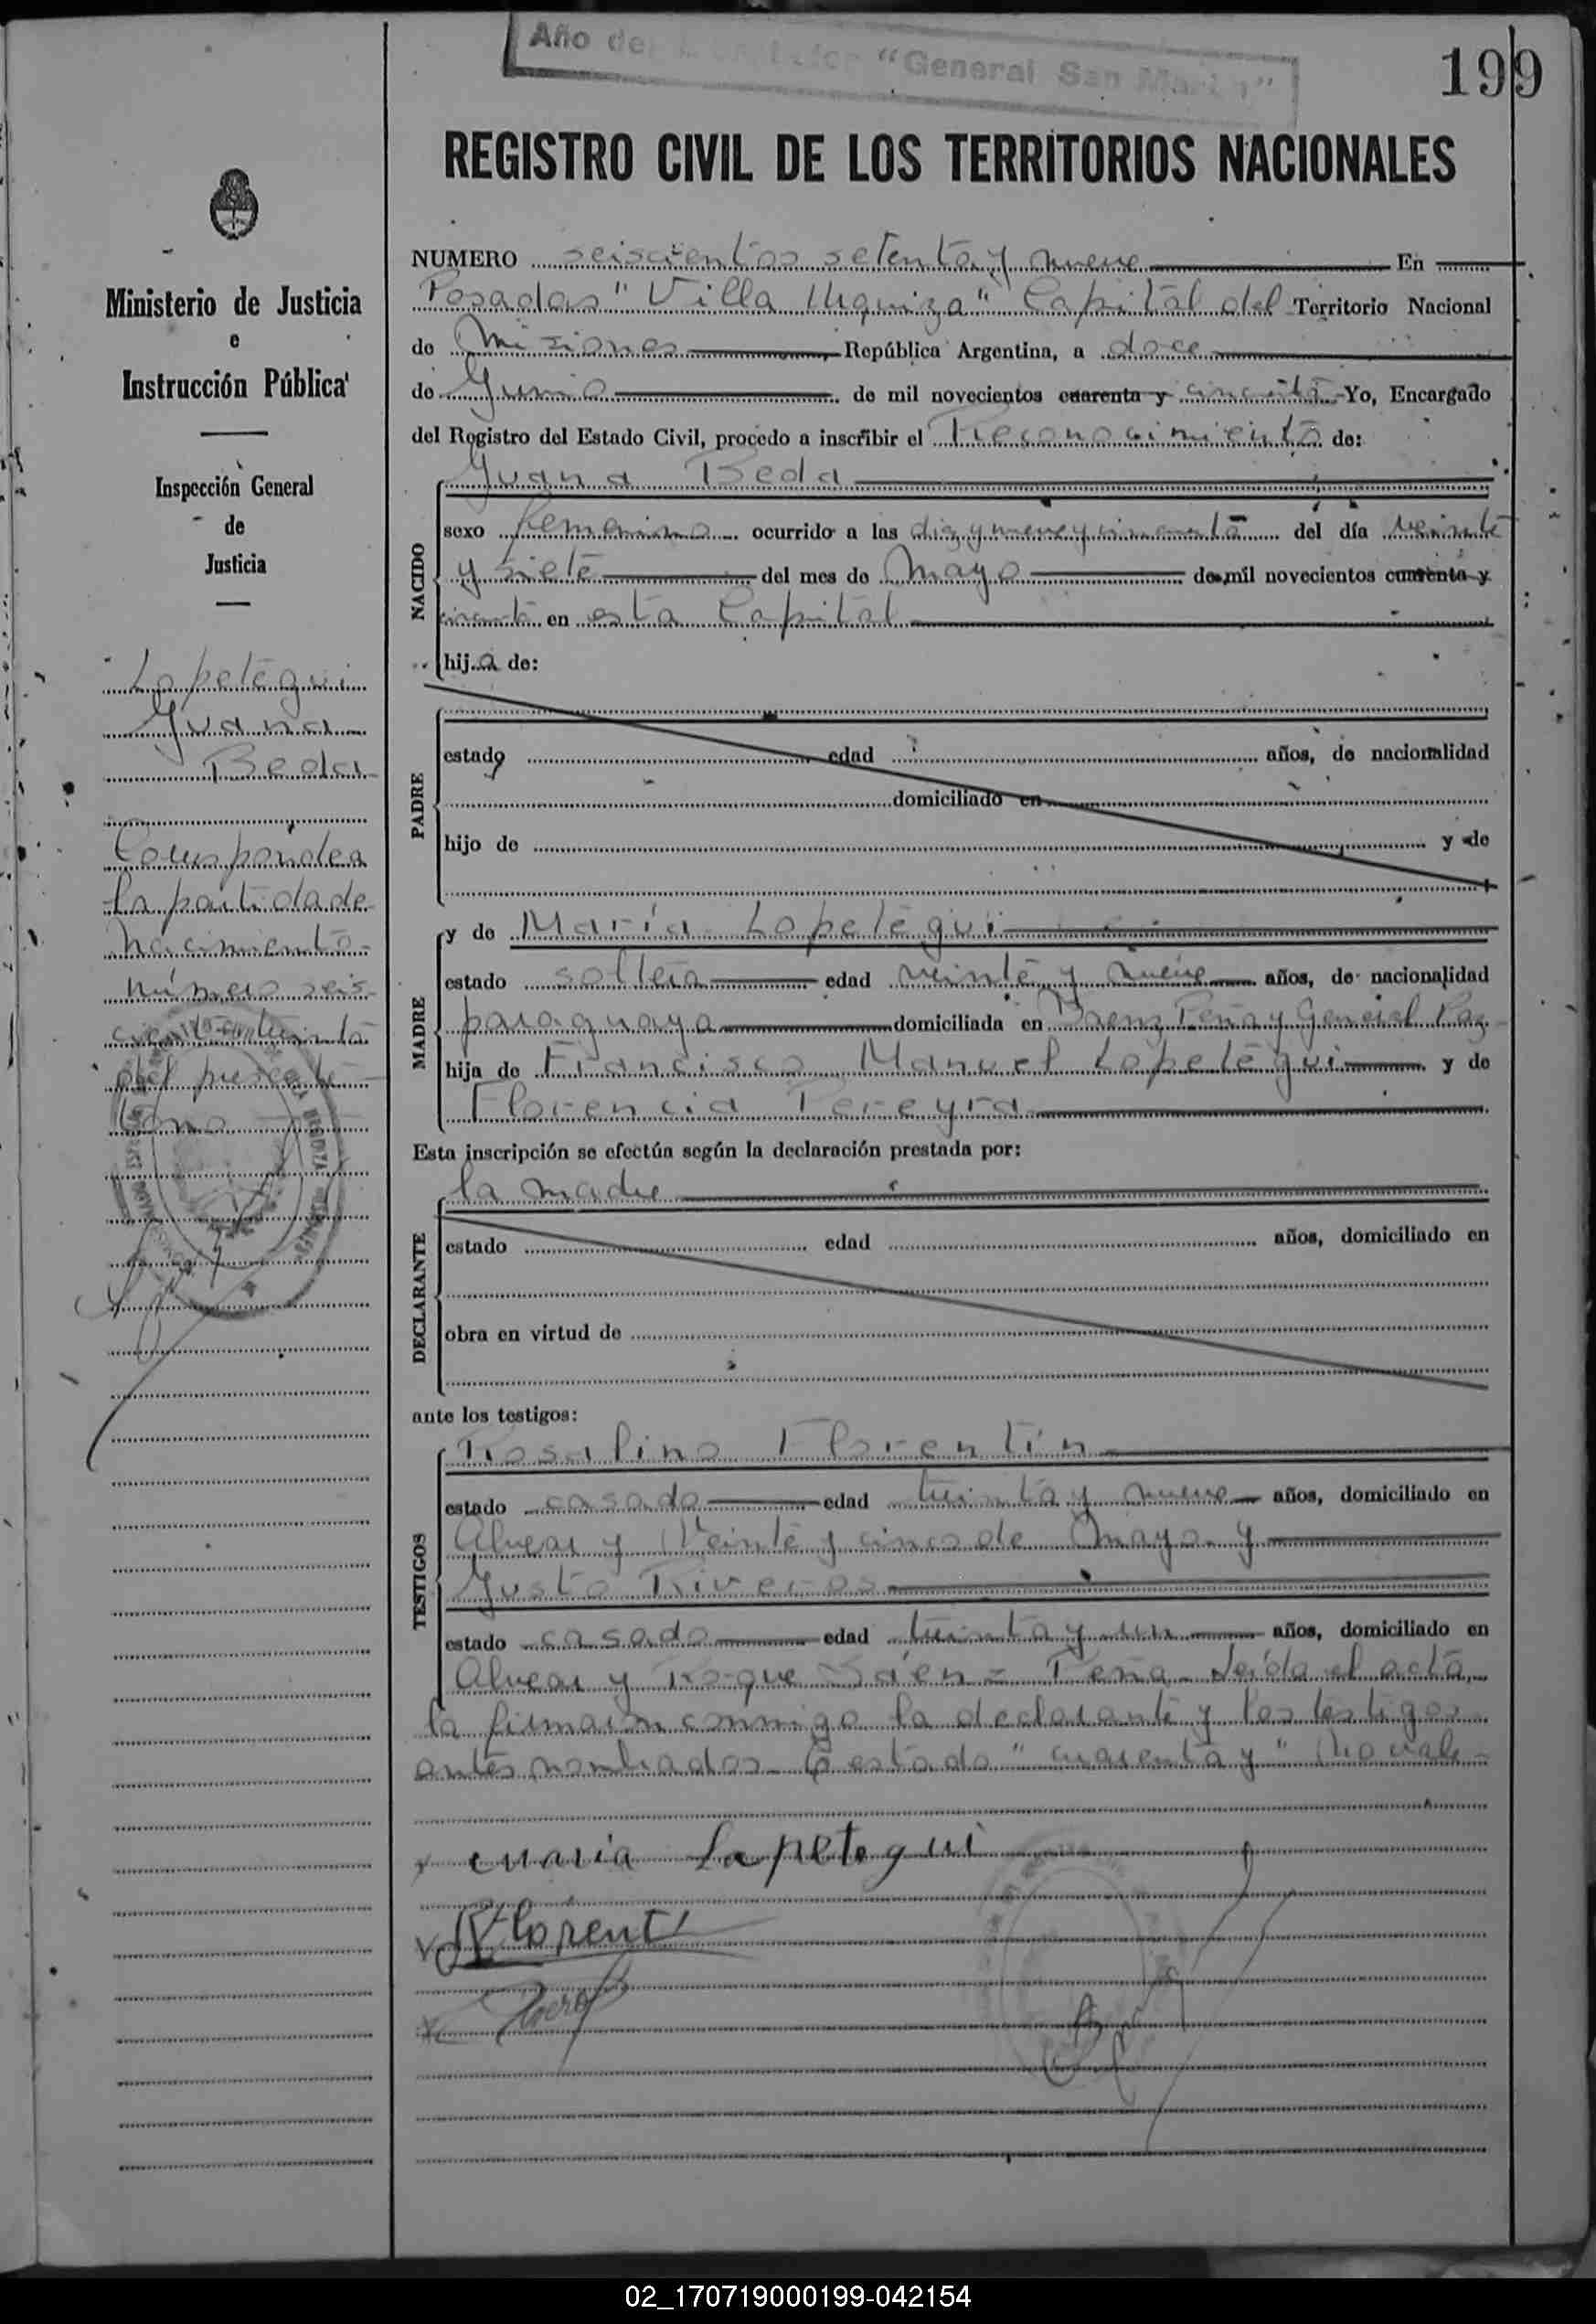 Año del Libertador "General San Martin"
199
REGISTRO CIVIL DE LOS TERRITORIOS NACIONALES
Ministerio de Justicia
e
Instrucción Pública
Inspección General
de
Justicia
Lopetegui
Juana
Beda
Corresponde a
la partida de
nacimiento
número seis
cientos treinta
del presente
tomo
NUMERO seiscientos setenta y nueve En
Posadas "Villa Urquiza" Capital del Territorio Nacional
de Misiones República Argentina, a doce
de Junio de mil novecientos cuarenta y cincuenta Yo, Encargado
del Registro del Estado Civil, procedo a inscribir el Reconocimiento de:
Juana Beda
NACIDO
sexo femenino ocurrido a las diez y nueve y cincuenta del día veinte
y siete del mes de Mayo de mil novecientos cuarenta y
cincuenta en esta Capital
hija de:
PADRE
estado edad años, de nacionalidad
domiciliado en
hijo de y de
MADRE
y de María Lopetegui
estado soltera edad veinte y nueve años, de nacionalidad
paraguaya domiciliada en Saenz Peña y General Paz
hija de Francisco Manuel Lopetegui y de
Florencia Pereyra
Esta inscripción se efectúa según la declaración prestada por:
la madre
DECLARANTE
estado edad años, domiciliado en
obra en virtud de
ante los testigos:
TESTIGOS
Rosalino Florentín
estado casado edad treinta y nueve años, domiciliado en
Alvear y Veinte y cinco de Mayo y
Justo Riveros
estado casado edad treinta y un años, domiciliado en
Alvear y Roque Sáenz Peña. Leída el acta,
la firmaron conmigo la declarante y los testigos
antes nombrados. Testado "cuarenta y" No vale
maria Lopetegui
RFlorent
02_170719000199-042154